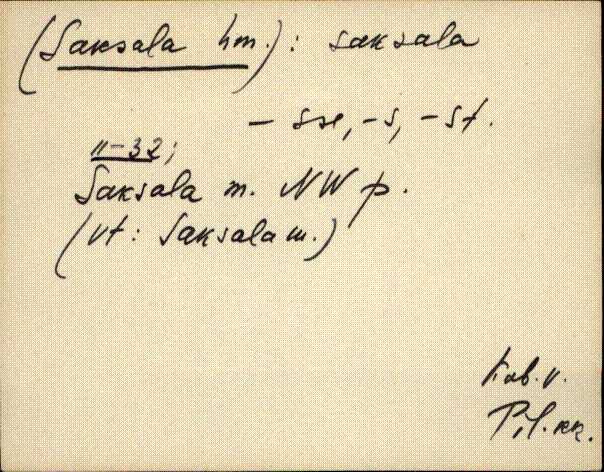 (Saksala hm.): saksala
- sse, -s, -st.
II-32;
Saksala m. NW p.
(vt: Saksala m.)
Kab. v.
Pil. kk.